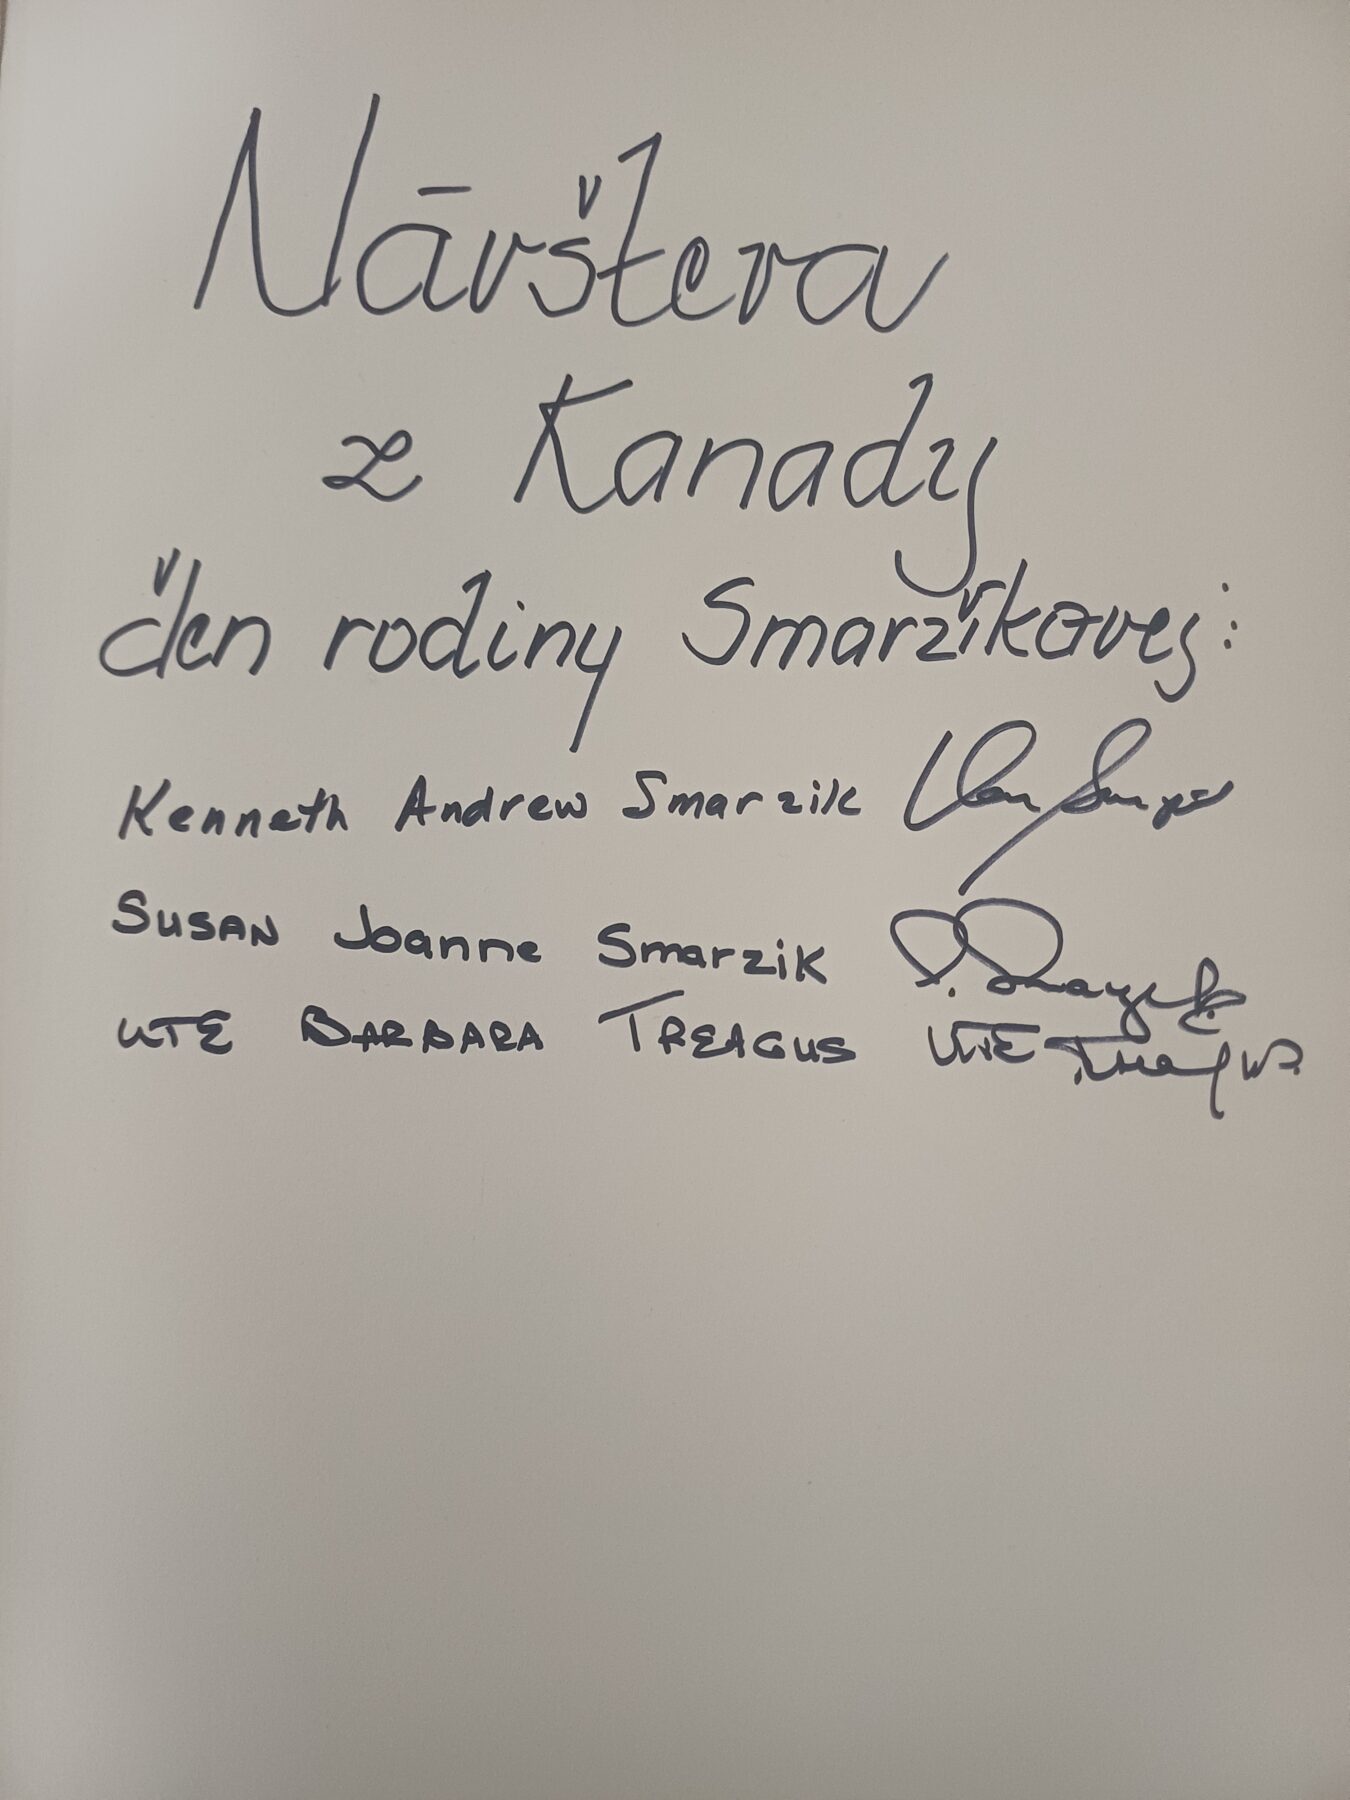 Návšteva
z Kanady
člen rodiny Smaržíkovej:
Kenneth Andrew Smarzik
SUSAN Joanne Smarzik
UTE BARBARA TREAGUS UTE